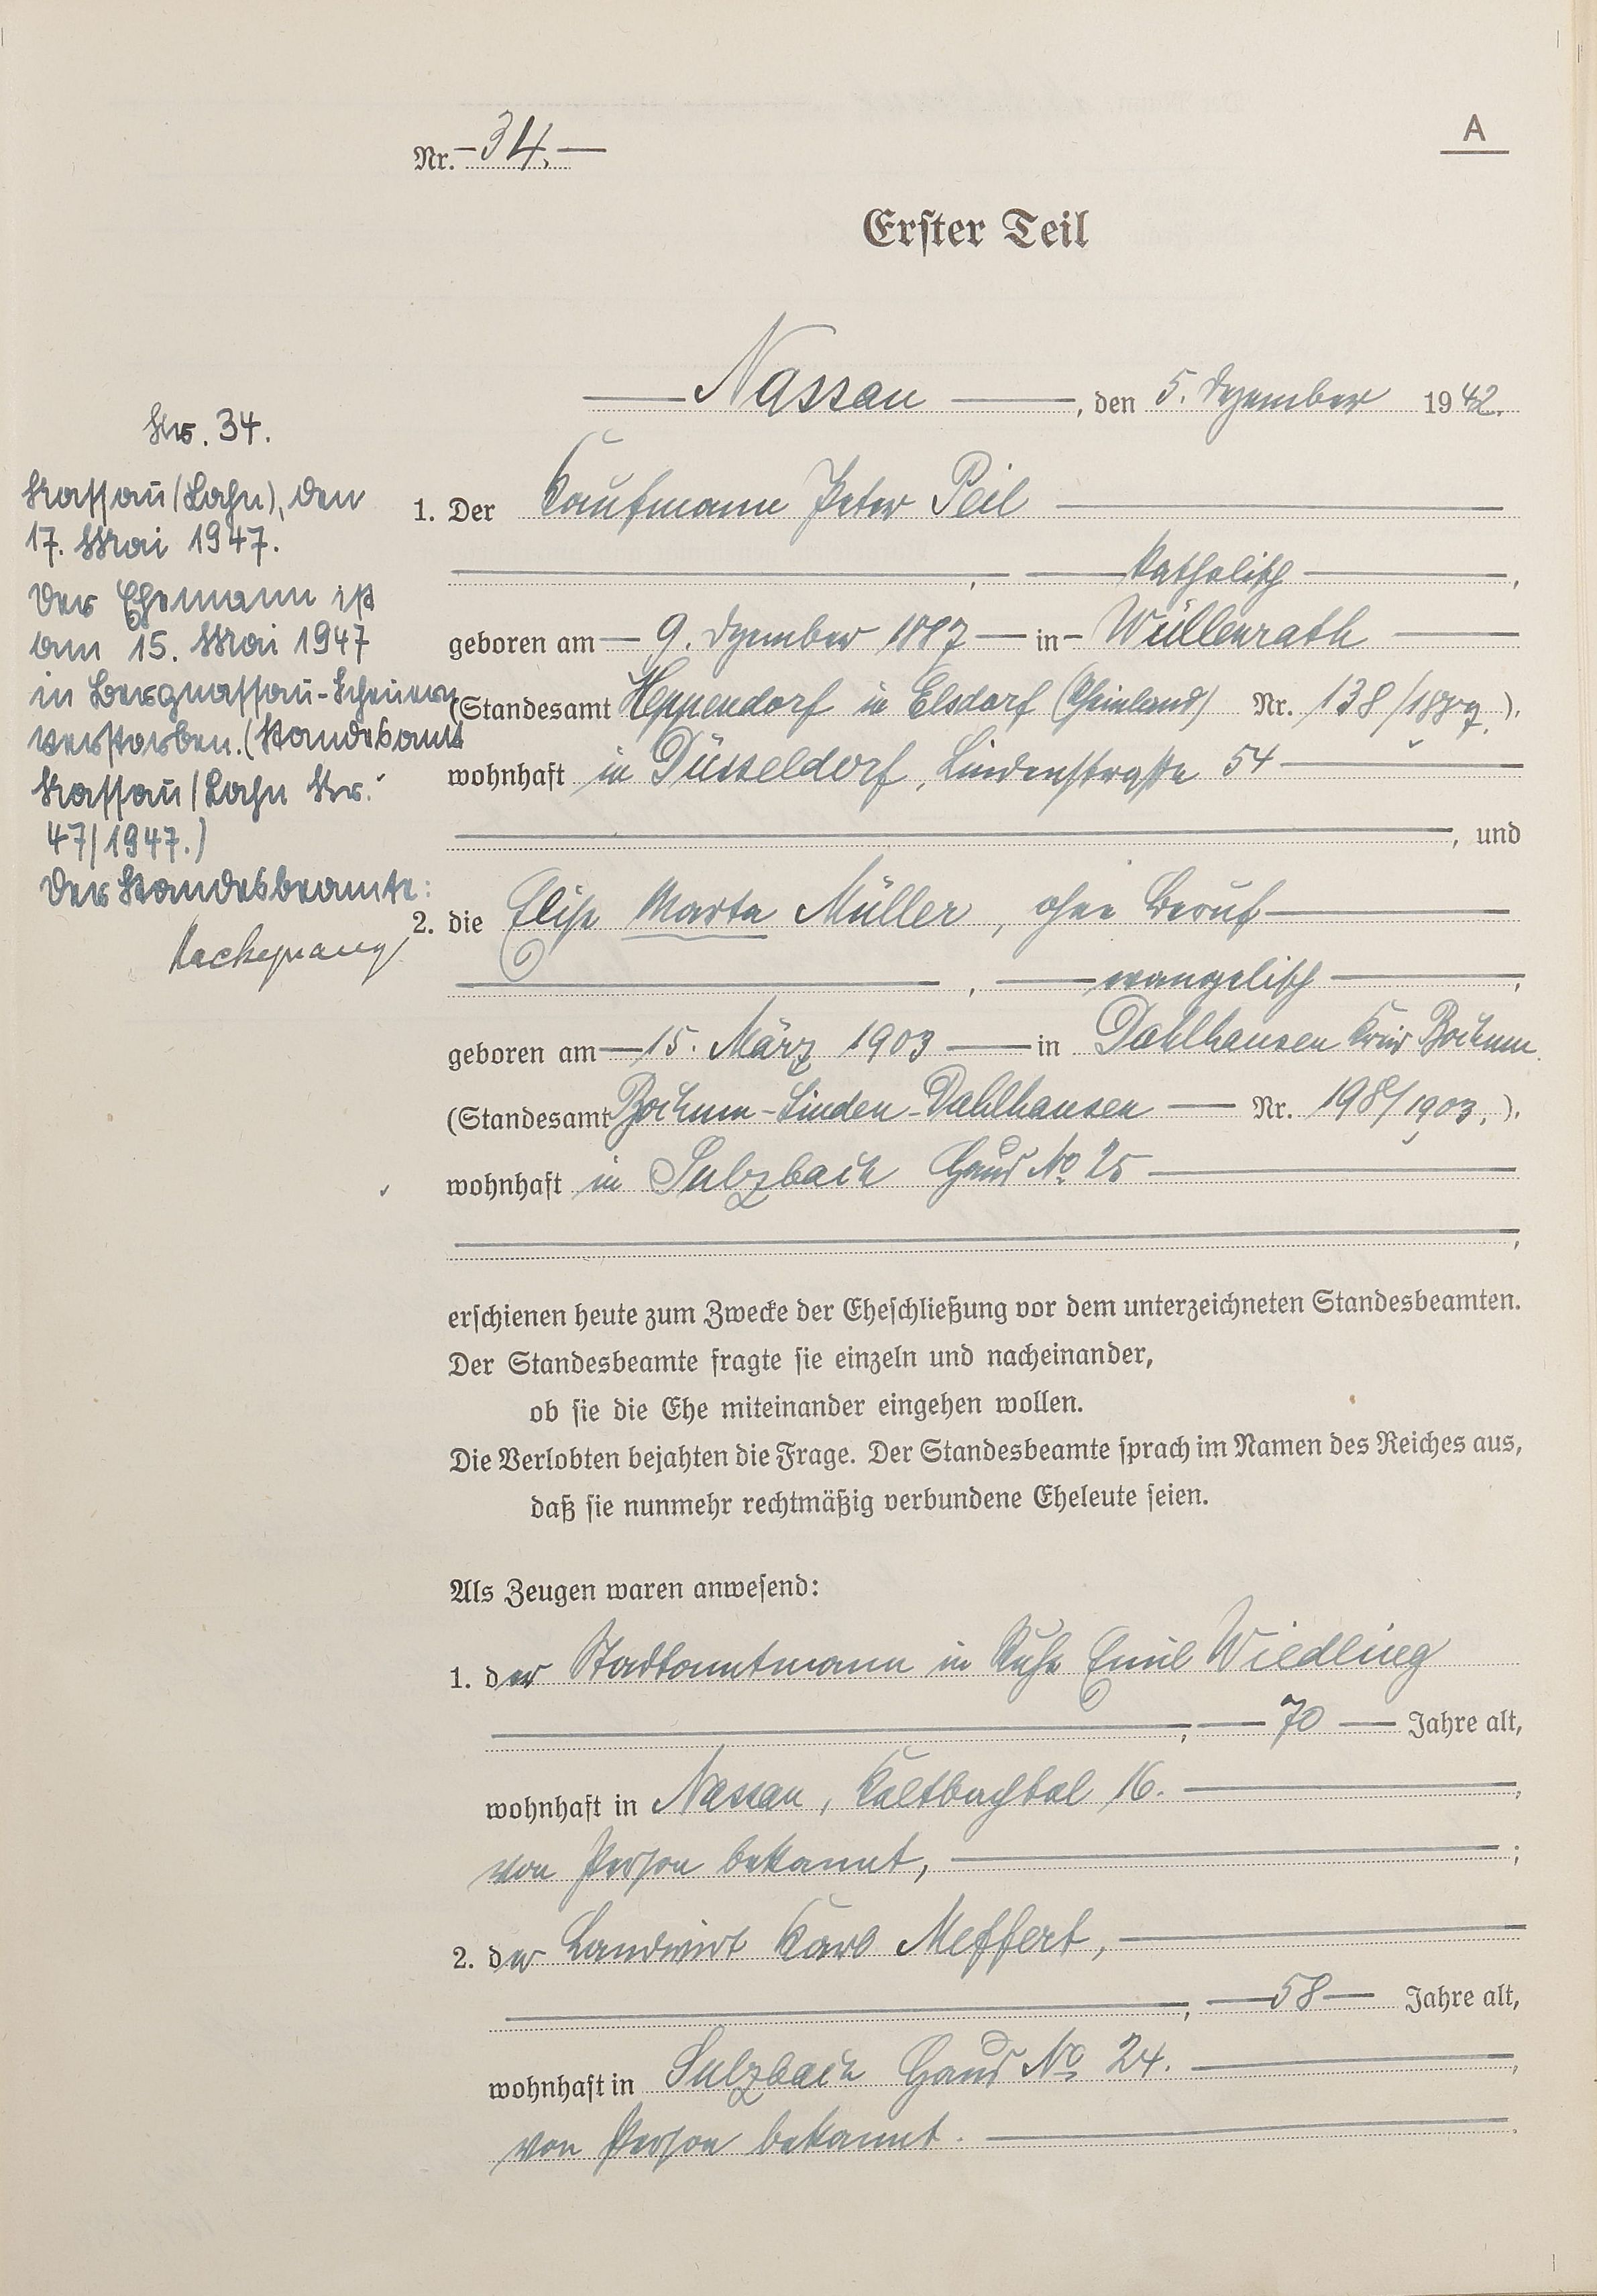 A
Nr. 34.
Erster Teil
Nassau, den 5. Dezember 1942.
1. Der Kaufmann Peter Peil
, katholisch,
geboren am 9. Dezember 1887 in Wüllenrath
(Standesamt Heppendorf in Elsdorf (Rheinland) Nr. 138/1887.),
wohnhaft in Düsseldorf, Lindenstraße 54
, und
2. die Elise Marta Müller, ohne Beruf
, evangelisch,
geboren am 15. März 1903 in Dahlhausen Kreis Bochum
(Standesamt Bochum-Linden-Dahlhausen Nr. 198/1903.),
wohnhaft in Sulzbach Haus No 25
,
erschienen heute zum Zwecke der Eheschließung vor dem unterzeichneten Standesbeamten.
Der Standesbeamte fragte sie einzeln und nacheinander,
ob sie die Ehe miteinander eingehen wollen.
Die Verlobten bejahten die Frage. Der Standesbeamte sprach im Namen des Reiches aus,
daß sie nunmehr rechtmäßig verbundene Eheleute seien.
Als Zeugen waren anwesend:
1. der Stadtamtmann in Ruhe Emil Wiedling
, 70 Jahre alt,
wohnhaft in Nassau, Kaltbachtal 16.,
von Person bekannt, ;
2. der Landwirt Karl Meffert,
, 58 Jahre alt,
wohnhaft in Sulzbach Haus No 24.,
von Person bekannt.
Nr. 34.
Nassau (Lahn), den
17. Mai 1947.
Der Ehemann ist
am 15. Mai 1947
in Bergnassau-Scheuern
verstorben. (Standesamt
Nassau/Lahn Nr.
47/1947.)
Der Standesbeamte: